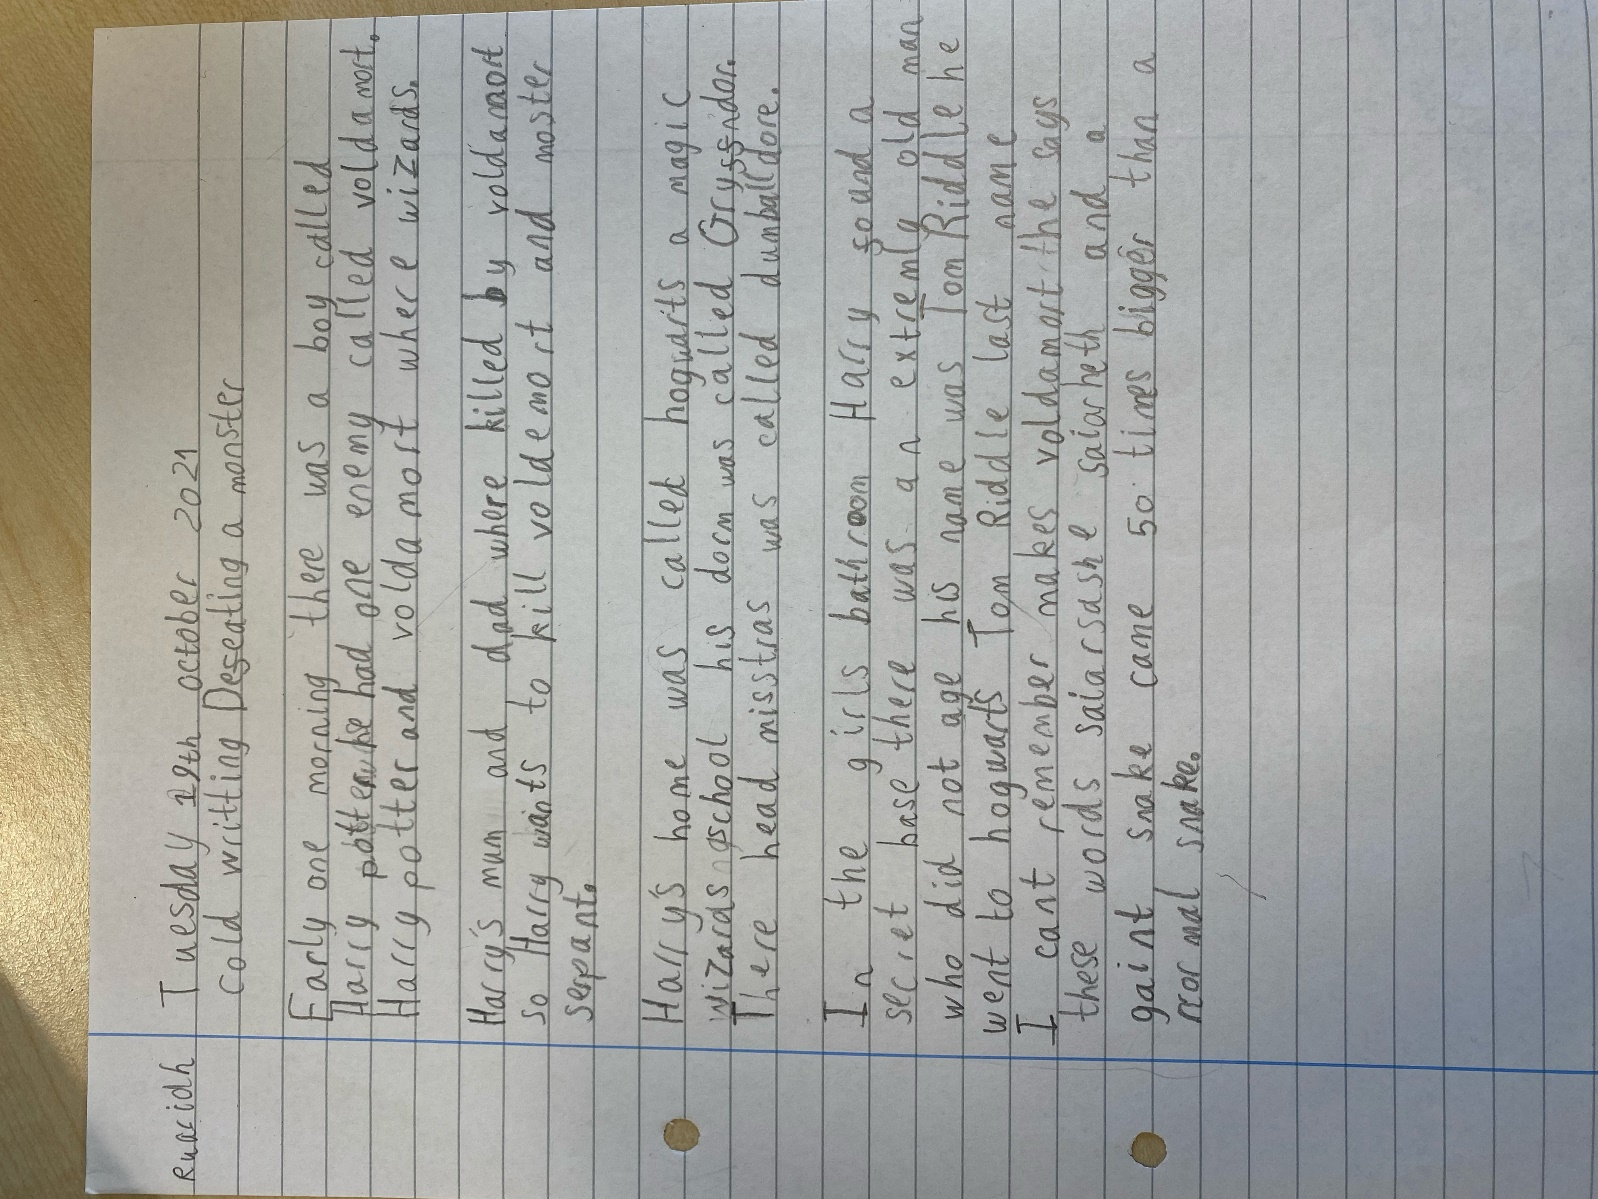 Ruaridh
Tuesday 19th october 2021
cold writting Defeating a monster
Early one morning there was a boy called
Harry potter he had one enemy called voldamort.
Harry potter and voldamort where wizards.
Harry's mum and dad where killed by voldamort
so Harry wants to kill voldemort and moster
serpant.
Harry's home was called hogwarts a magic
wizards school his dorm was called Gryffndor.
There head misstras was called dumballdore.
In the girls bathroom Harry found a
secret base there was an extremly old man
who did not age his name was Tom Riddle he
went to hogwarts Tom Riddle last name
I cant remember makes voldamort the says
these words saiarsashe saiarheth and a
gaint snake came 50 times bigger than a
normal snake.